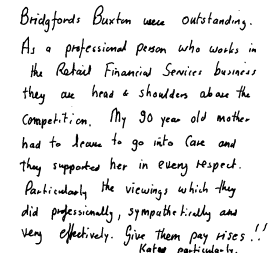 Bridgfords Buxton were outstanding.
As a professional person who works in
the Retail Financial Services business
they are head & shoulders above the
competition. My 90 year old mother
had to leave to go into Care and
they supported her in every respect.
Particularly the viewings which they
did professionally, sympathetically and
very effectively. Give them pay rises!!
Kate particularly.